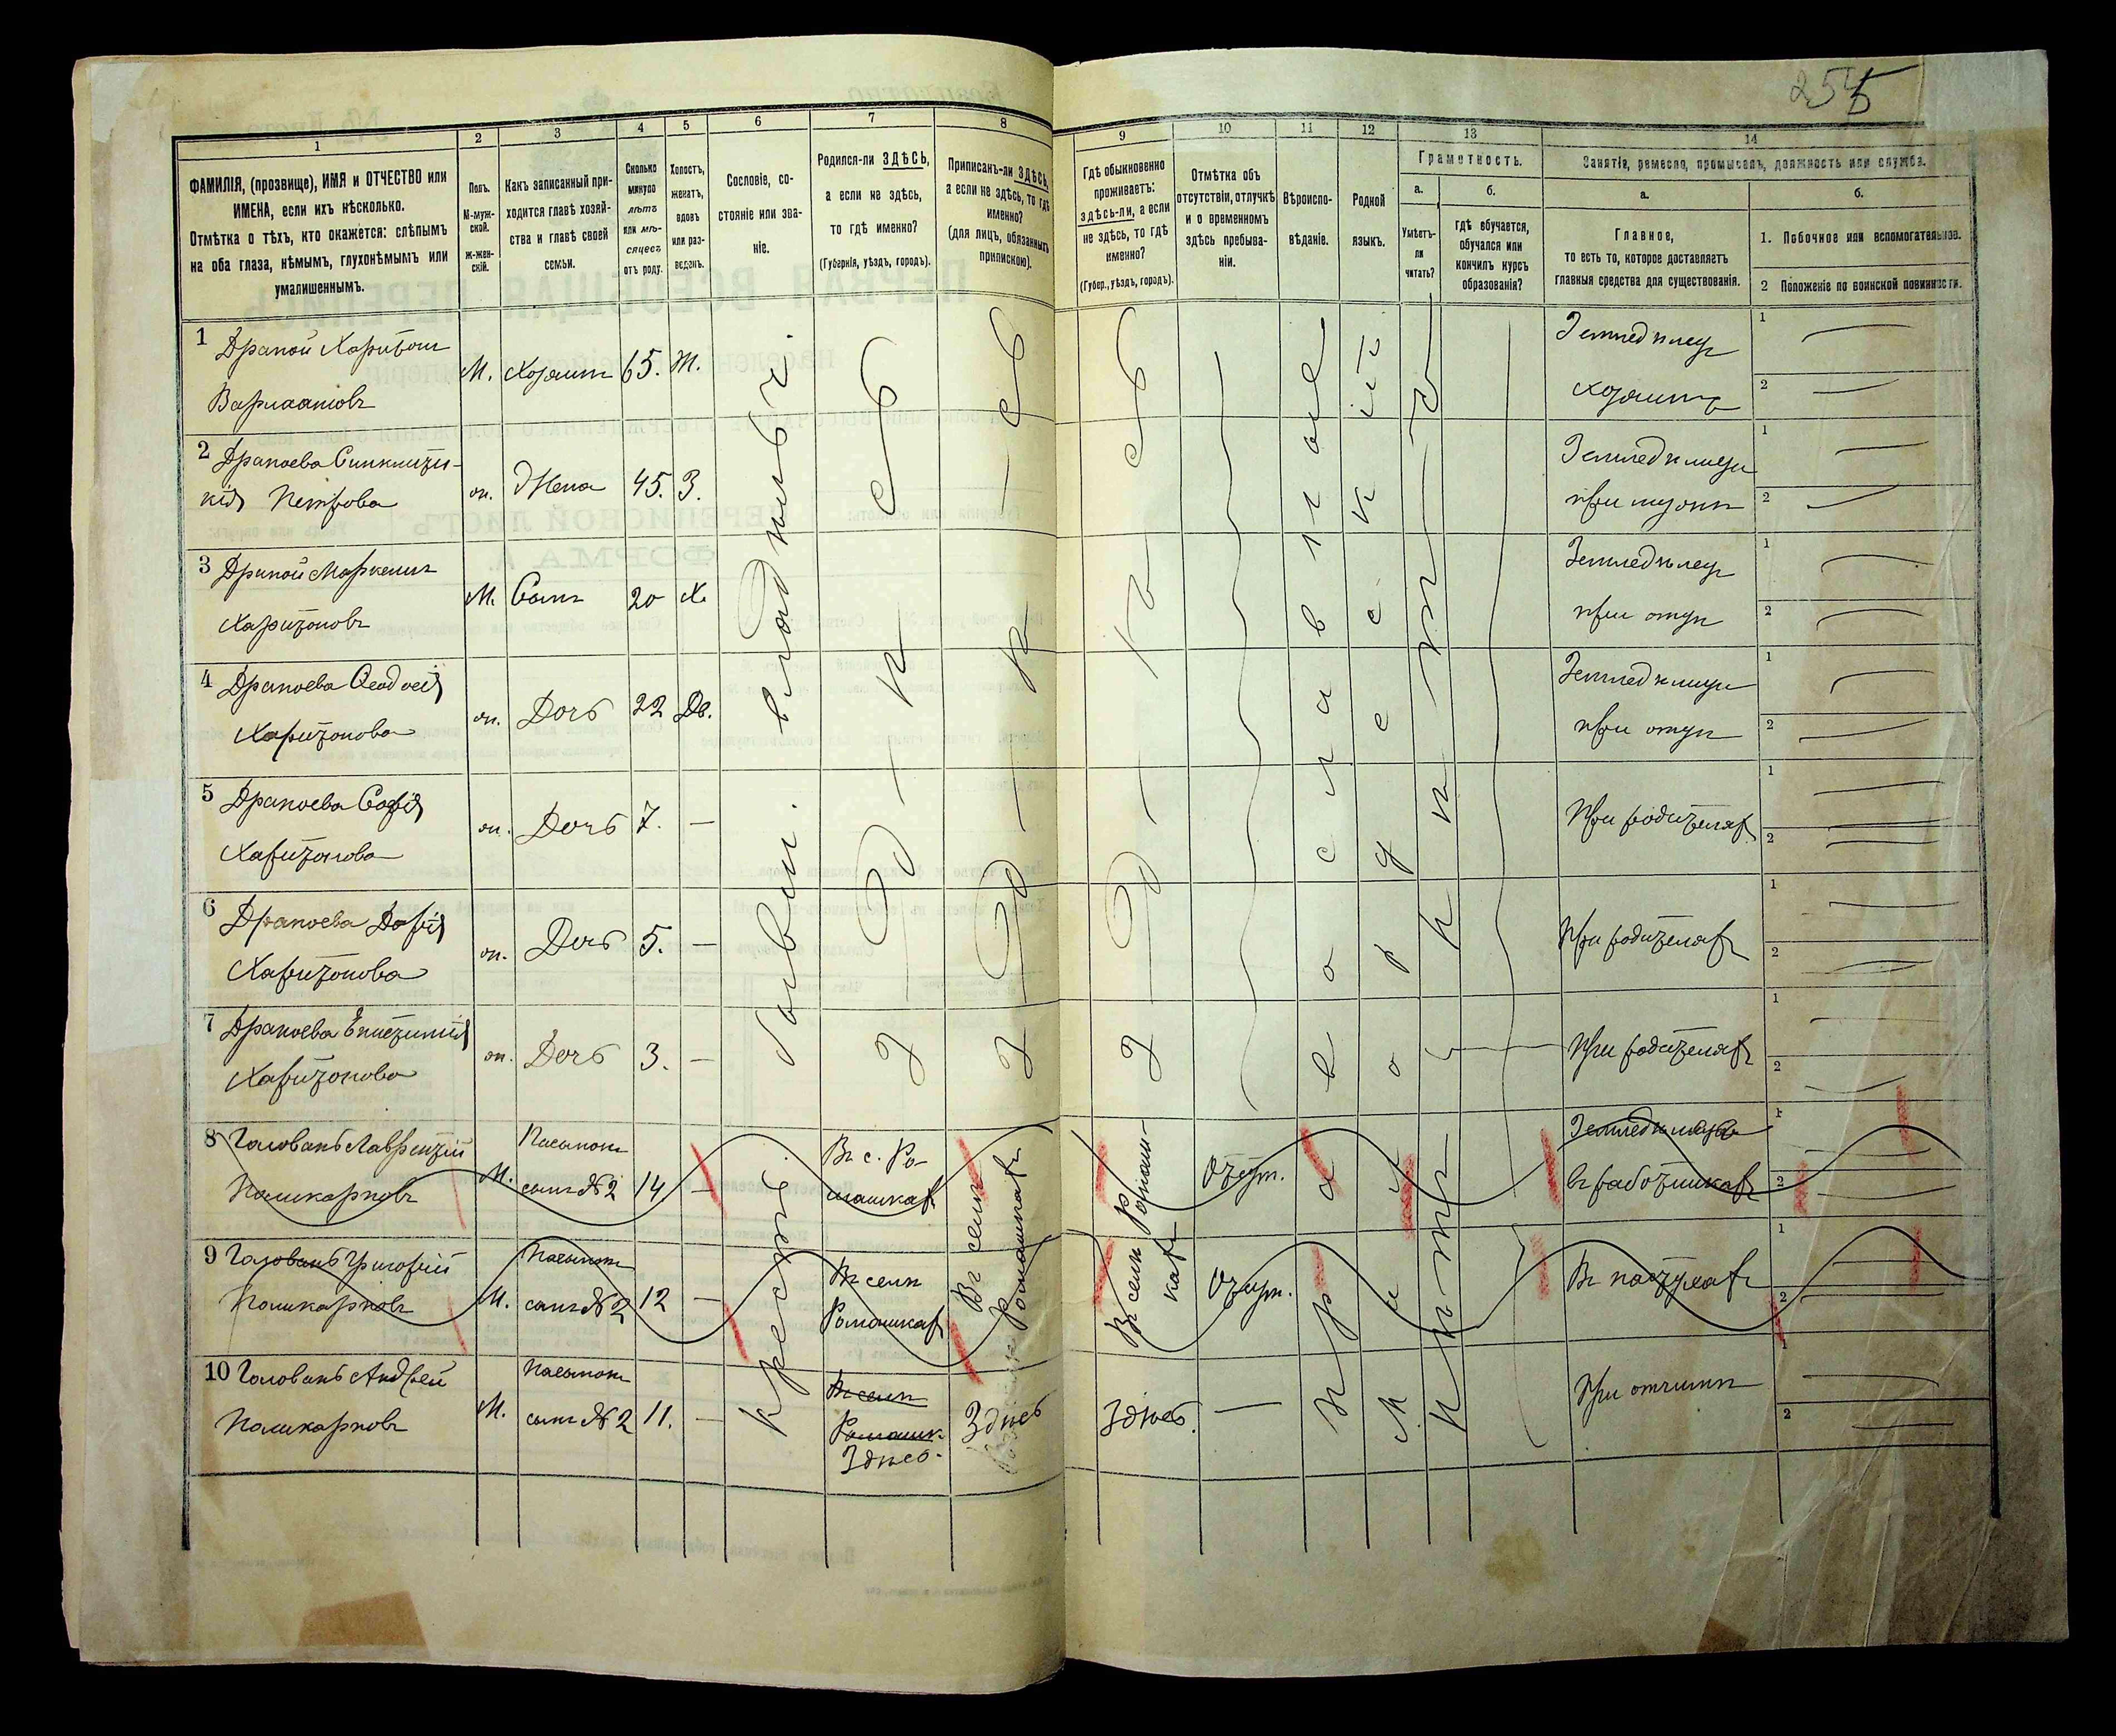 255
1
2
3
4
5
6
7
8
9
10
11
12
13
14
ФАМИЛІЯ, (прозвище), ИМЯ и ОТЧЕСТВО или
ИМЕНА, если ихъ нѣсколько.
Отмѣтка о тѣхъ, кто окажется: слѣпымъ
на оба глаза, нѣмымъ, глухонѣмымъ или
умалишеннымъ.
Полъ.
М-муж-
ской.
Ж-жен-
скій.
Какъ записанный при-
ходится главѣ хозяй-
ства и главѣ своей
семьи.
Сколько
минуло
лѣтъ
или мѣ-
сяцевъ
отъ роду.
Холостъ,
женатъ,
вдовъ
или раз-
веденъ.
Сословіе, со-
стояніе или зва-
ніе.
Родился-ли ЗДѢСЬ,
а если не здѣсь,
то гдѣ именно?
(Губернія, уѣздъ, городъ).
Приписанъ-ли ЗДѢСЬ,
а если не здѣсь, то гдѣ
именно?
(для лицъ, обязанныхъ
припискою).
Гдѣ обыкновенно
проживаетъ:
здѣсь-ли, а если
не здѣсь, то гдѣ
именно?
(Губер., уѣздъ, городъ).
Отмѣтка объ
отсутствіи, отлучкѣ
и о временномъ
здѣсь пребыва-
ніи.
Вѣроиспо-
вѣданіе.
Родной
языкъ.
Грамотность.
а.
Умѣетъ-
ли
читать?
б.
гдѣ обучается,
обучался или
кончилъ курсъ
образованія?
Занятія, ремесло, промыселъ, должность или служба.
а.
Главное,
то есть то, которое доставляетъ
главныя средства для существованія.
б.
1. Побочное или вспомогательное.
2 Положеніе по воинской повинности.
1 Драной Харитонъ
Варлаамовъ
М.
Хозяинъ
65.
Ж.
Земледѣлецъ
хозяинъ
2 Драноева Синклити-
кія Петрова
Ж.
Жена
45.
З.
при мужѣ
3 Драной Маркелъ
Харитоновъ
М.
Сынъ
20
Х.
Земледѣлецъ
при отцѣ
4 Драноева Ѳеодосія
Харитонова
Ж.
Дочь
22
Дв.
при отцѣ
5 Драноева Софія
Харитонова
Ж.
Дочь
7.
—
При родителяхъ
6 Драноева Дарія
Харитонова
Ж.
Дочь
5.
—
При родителяхъ
7 Драноева
Харитонова
Ж.
Дочь
3.
—
При родителяхъ
8 Головань Лаврентій
Поликарповъ
М.
Пасынокъ
сынъ №2
14
—
Въ с. Ро-
машкахъ
Въ селѣ
Ромашкахъ
Въ селѣ Ромаш-
кахъ
Отсут.
въ работникахъ
9 Головань Григорій
Поликарповъ
М.
Пасынокъ
сынъ №2
12
—
Въ селѣ
Ромашкахъ
Отсут.
Въ пастухахъ
10 Головань Андрей
Поликарповъ
М.
Пасынокъ
сынъ №2
11.
—
Въ селѣ
Ромашк.
Здѣсь.
Здѣсь
Здѣсь.
—
При отчимѣ
Крестьян.
Здѣсь
Здѣсь
Здѣсь
Православное
Малорусскій